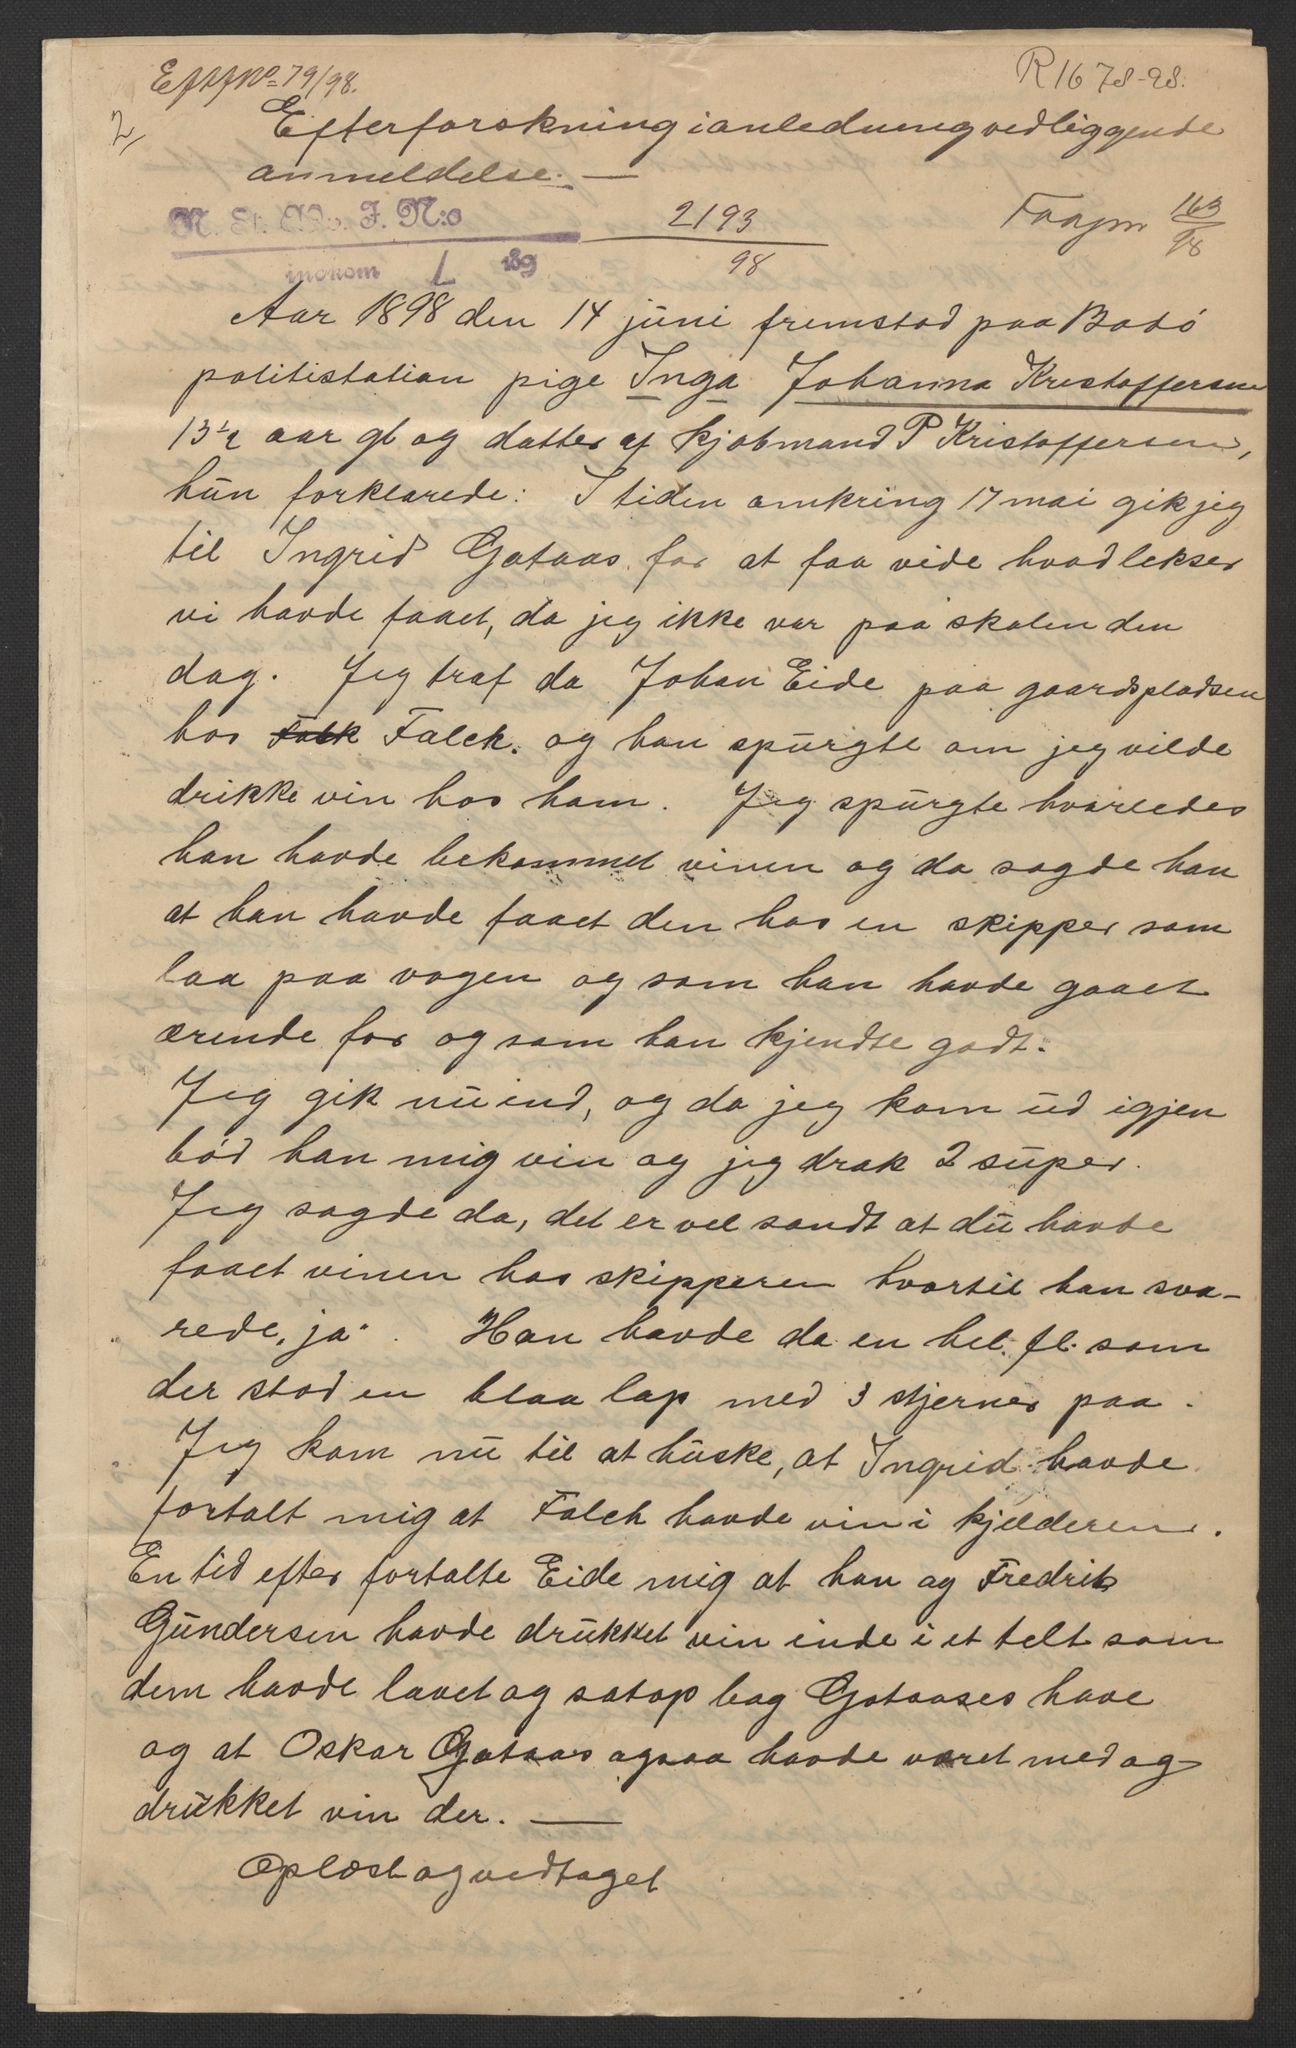 Eftf No 79/98.
R 1678-98.
2,
Efterforskning i anledning vedliggende
anmeldelse. —
N. St. Adv. J. N:o 2193/98
indkom L 189
163/98
Aar 1898 den 14 juni fremstod paa Bodó
politistation pige Inga Johanna Kristoffersen
13½ aar gl og datter af kjøbmand P Kristoffersen,
hun forklarede: I tiden omkring 17 mai gik jeg
til Ingrid Gotaas for at faa vide hvad lekser
vi havde faaet, da jeg ikke var paa skolen den
dag. Jeg traf da Johan Eide paa gaardspladsen
hos Falk Falch. og han spurgte om jeg vilde
drikke vin hos ham. Jeg spurgte hvorledes
han havde bekommet vinen og da sagde han
at han havde faaet den hos en skipper som
laa paa vagen og som han havde gaaet
ærende for og som han kjendte godt.
Jeg gik nu ind, og da jeg kom ud igjen
bød han mig vin og jeg drak 2 super.
Jeg sagde da, det er vel sandt at du havde
faaet vinen hos skipperen hvortil han sva-
rede, ja". Han havde da en hel. fl. som
der stod en blaa lap med 3 stjerner paa.
Jeg kom nu til at huske, at Ingrid havde
fortalt mig at Falch havde vin i kjelderen.
En tid efter fortalte Eide mig at han og Fredrik
Gundersen havde drukket vin inde i et telt som
dem havde lavet og sat op bag Gotaases have
og at Oskar Gotaas ogsaa havde været med og
drukket vin der. —
Oplæst og vedtaget